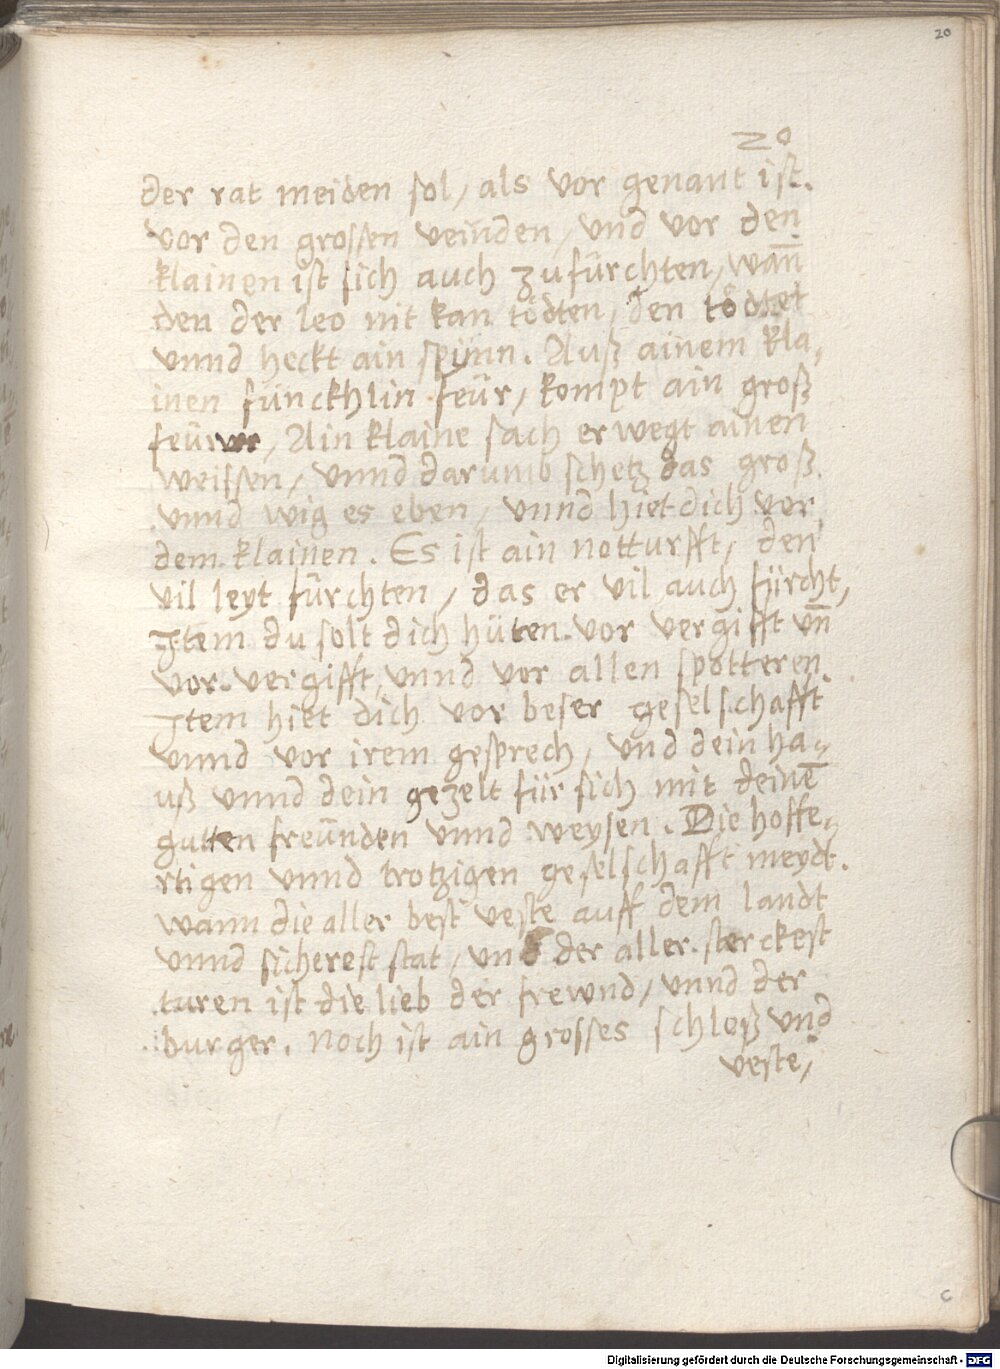 20
20
der rat meiden sol, als vor genant ist.
vor den grossen veinden, und vor den
klainen ist sich auch zufürchten, wan̄
den der leo nit kan tödten, den tödtet
vnnd heckt ain spünn. Auß ainem kla„
inen fünckhlin feür, kompt ain groß
feürwr, Ain klaine sach erwegt ainen
weissen, vnnd darumb schetz das groß
vnnd wig es eben, vnnd hiet dich vor
dem klainen. Es ist ain notturfft, den
vil leyt fürchten, das er vil auch fürcht,
Item du solt dich hüten vor vergifft vn̄
vor vergifft, vnnd vor allen spötteren.
Item hiet dich vor beser geselschafft
vnnd vor irem gesprech, und dein ha„
uß vnnd dein gezelt für sich mit deinē
gutten freünden vnnd weysen. Die hoffe„
rtigen vnnd trotzigen geselschafft meydt.
wann die aller best veste auff dem landt
vnnd sicherest stat, und der aller sterckest
turen ist die lieb der frewnd, vnnd der
burger. noch ist ain grosses schloß vnd
veste,
C
Digitalisierung gefördert durch die Deutsche Forschungsgemeinschaft - DFG